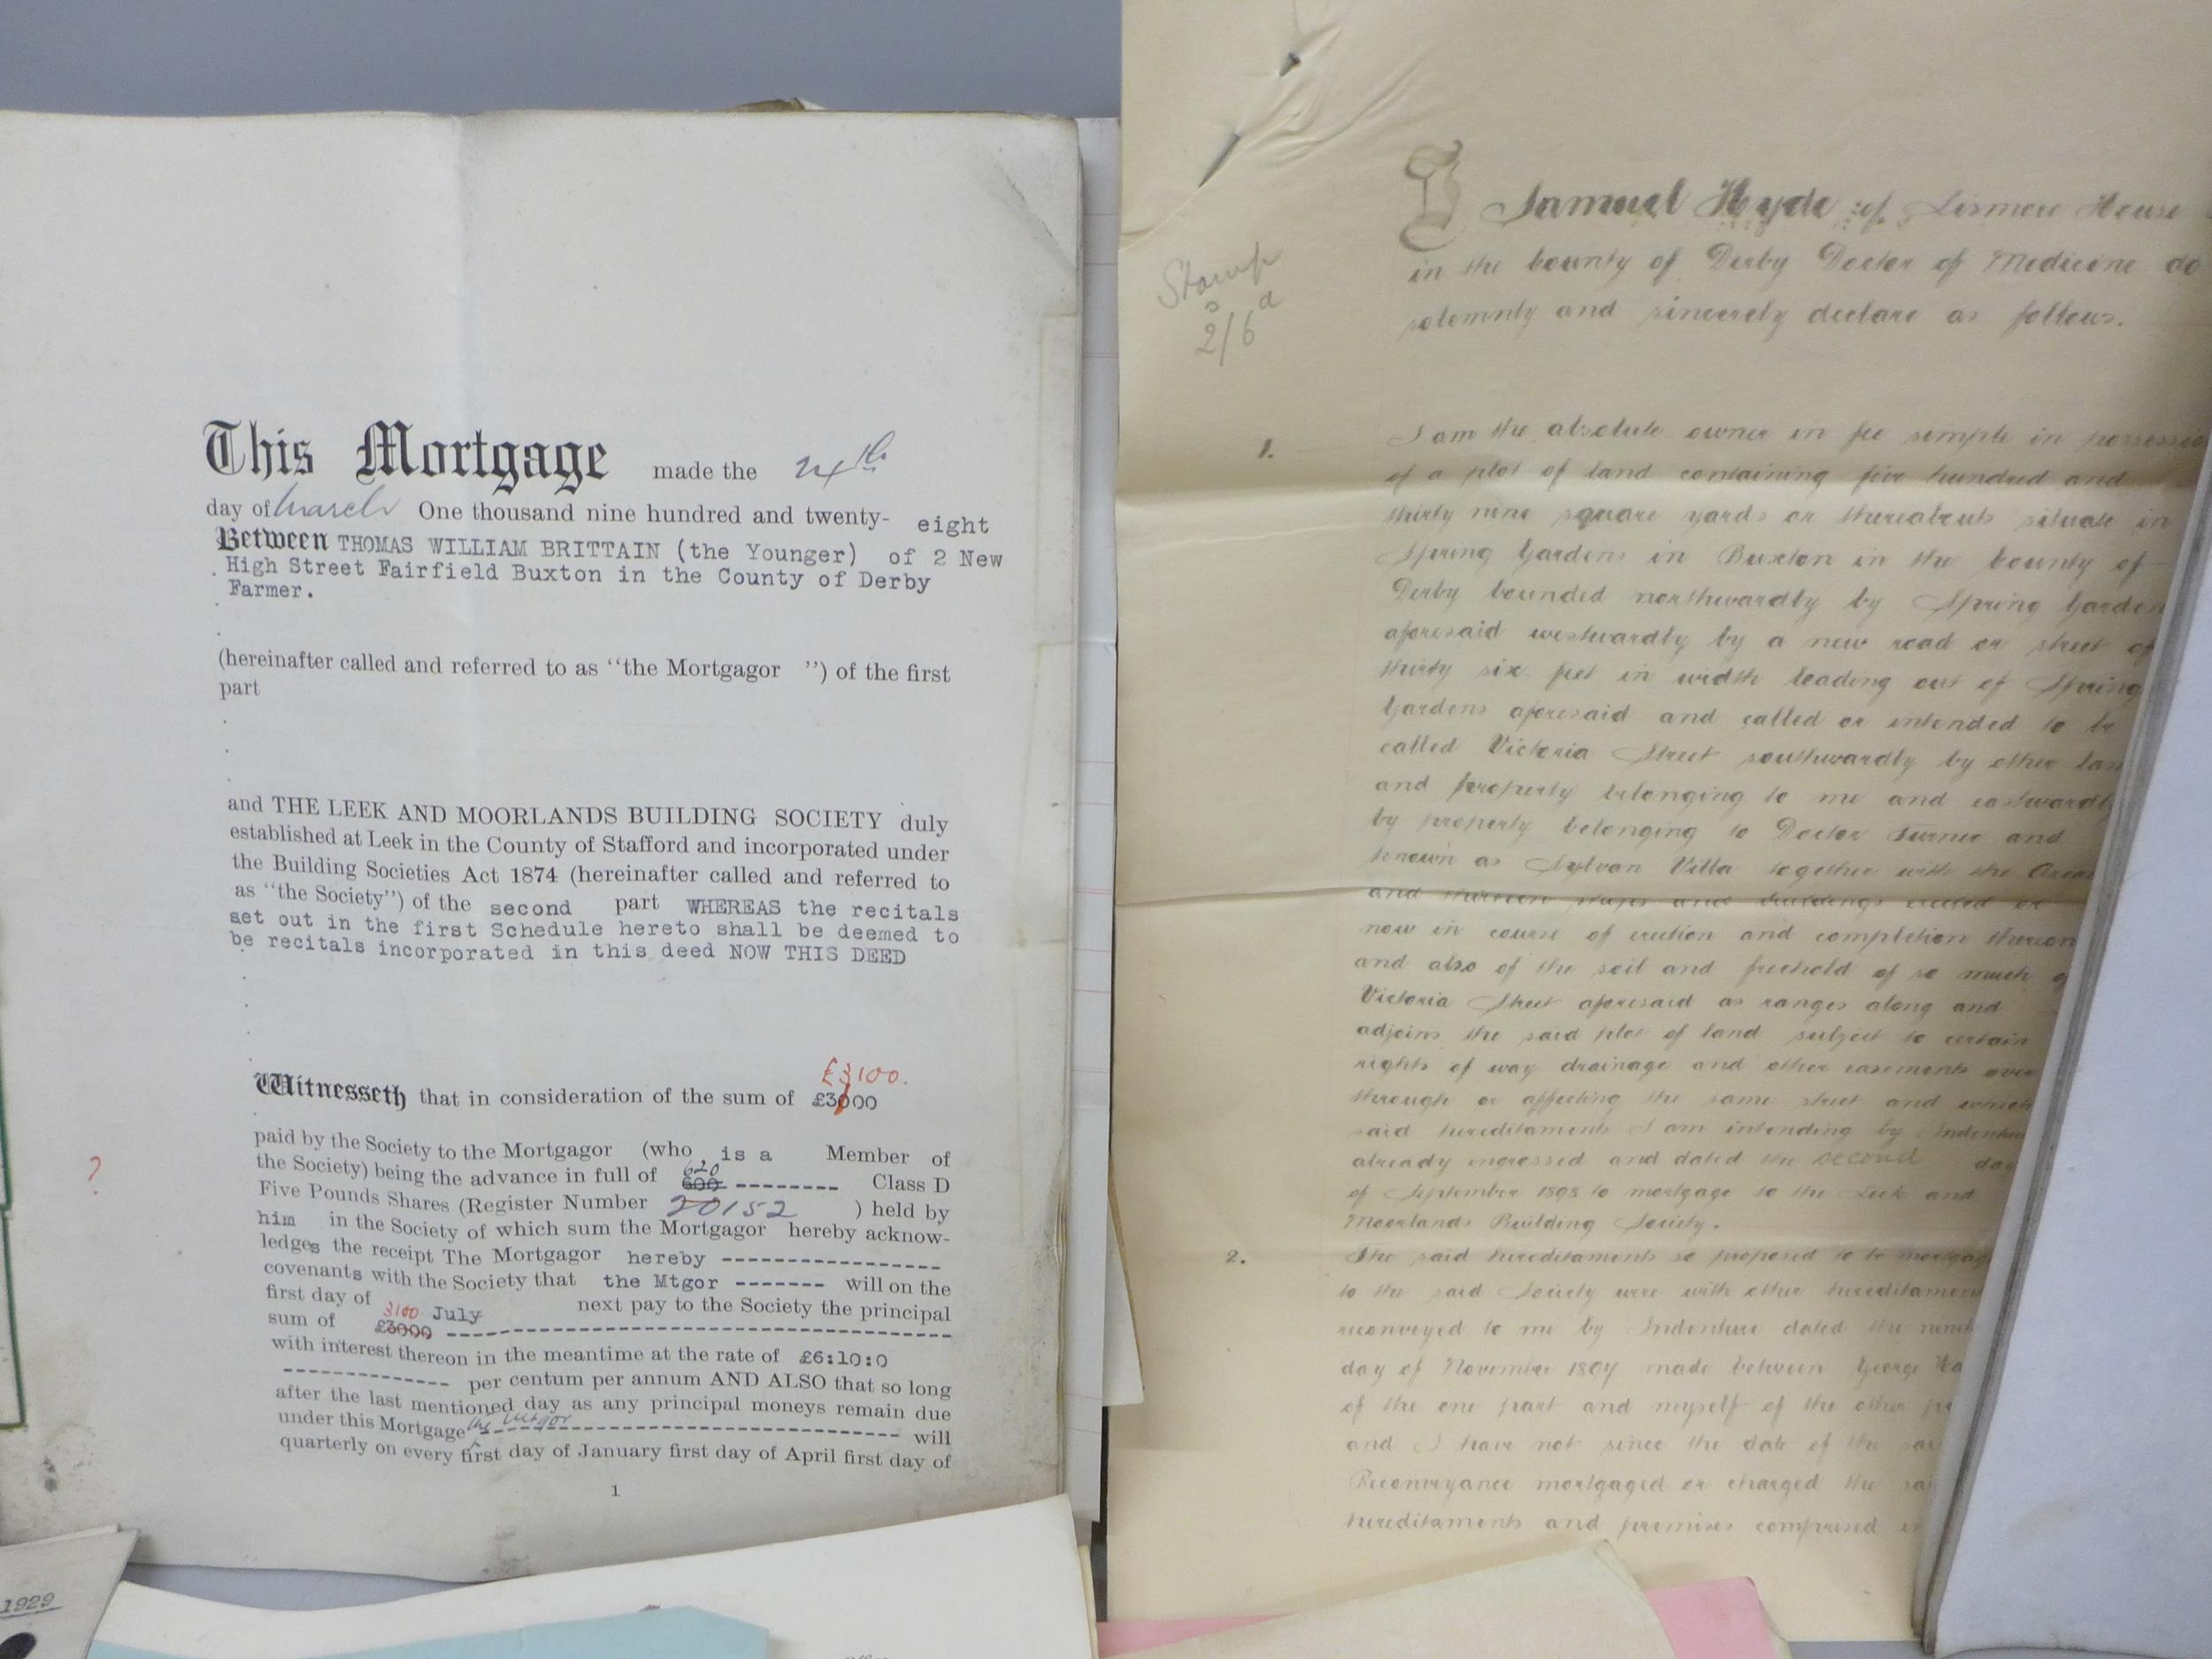 This Mortgage made the 24th
day of March One thousand nine hundred and twenty- eight
Between THOMAS WILLIAM BRITTAIN (the Younger) of 2 New
High Street Fairfield Buxton in the County of Derby
Farmer.
(hereinafter called and referred to as "the Mortgagor ") of the first
part
and THE LEEK AND MOORLANDS BUILDING SOCIETY duly
established at Leek in the County of Stafford and incorporated under
the Building Societies Act 1874 (hereinafter called and referred to
as "the Society") of the second part WHEREAS the recitals
set out in the first Schedule hereto shall be deemed to
be recitals incorporated in this deed NOW THIS DEED
£3100.
Witnesseth that in consideration of the sum of £3000
paid by the Society to the Mortgagor (who is a Member of
620
the Society) being the advance in full of 600 -------- Class D
Five Pounds Shares (Register Number 20152 ) held by
him in the Society of which sum the Mortgagor hereby acknow-
ledges the receipt The Mortgagor hereby -----------------
covenants with the Society that the Mtgor ------- will on the
first day of July next pay to the Society the principal
3100
sum of £3000 ----------------------------------------
with interest thereon in the meantime at the rate of £6:10:0
------------- per centum per annum AND ALSO that so long
after the last mentioned day as any principal moneys remain due
under this Mortgage the Mtgor ------------------------------- will
quarterly on every first day of January first day of April first day of
1
?
1929
Stamp
s d
2/6
I Samuel Hyde of Lismore House
in the County of Derby Doctor of Medicine do
solemnly and sincerely declare as follows.
1. I am the absolute owner in fee simple in
of a plot of land containing five hundred and
thirty nine square yards or thereabouts situate in
Spring Gardens in Buxton in the County of
Derby bounded northwardly by Spring Garden
aforesaid westwardly by a new road or street of
thirty six feet in width leading out of Spring
Gardens aforesaid and called or intended to be
called Victoria Street southwardly by other
and property belonging to me and eastwardly
by property belonging to Doctor Turner and
known as Sylvan Villa together with the
and shops and buildings erected or
now in course of erection and completion thereon
and also of the soil and freehold of so much
Victoria Street aforesaid as ranges along and
adjoins the said plot of land subject to certain
rights of way drainage and other easements over
through or affecting the same street and which
said hereditaments I am intending by
already engrossed and dated the second day
of September 1898 to mortgage to the Leek and
Moorlands Building Society.
2. The said hereditaments so proposed to be
to the said Society were with other
reconveyed to me by Indenture dated the
day of November 1897 made between George
of the one part and myself of the other
and I have not since the date of the
Reconveyance mortgaged or charged the
hereditaments and premises comprised